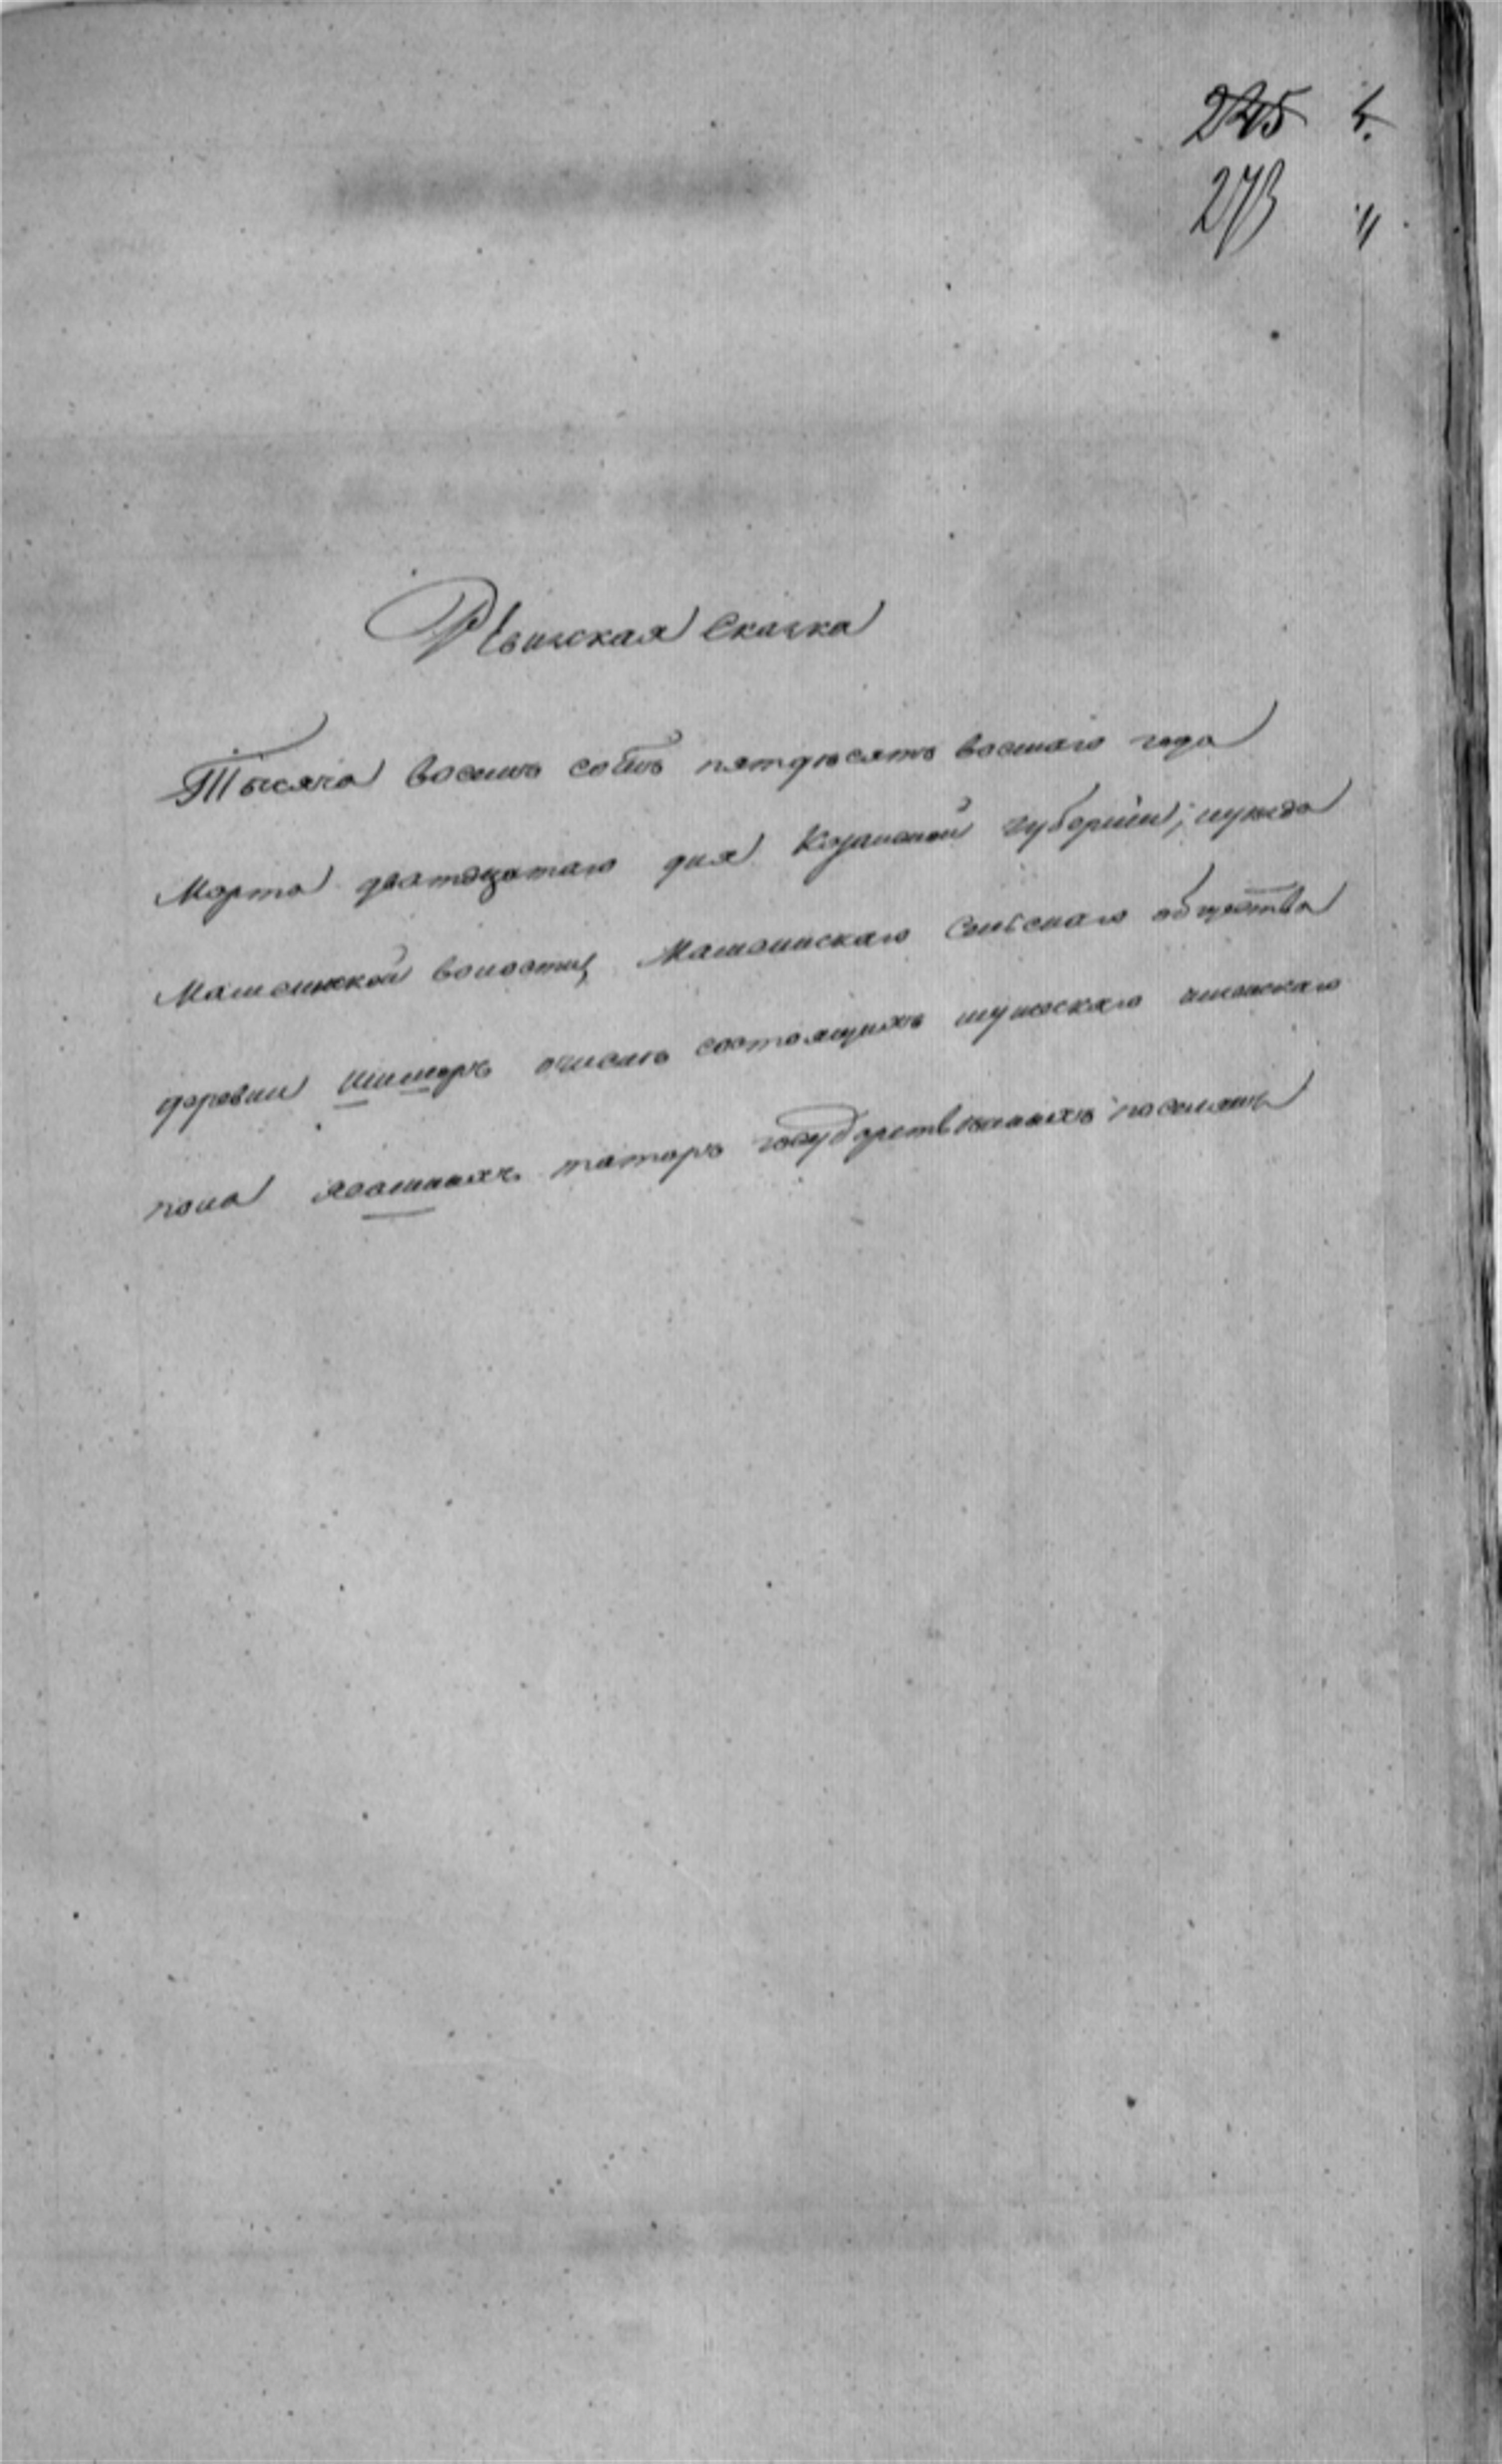 245
273 "
Ревижская сказка
Тысяча восемь сотъ пятдѣсятъ восмаго года
Марта дватдцатаго дня Казанской губерніи, и уѣзда
Мамсинской волости, Мамсинскаго Сельскаго общества
деревни Шимеръ очислѣ состоящихъ мужескаго иженскаго
пола ясашныхъ татаръ государственныхъ поселянъ